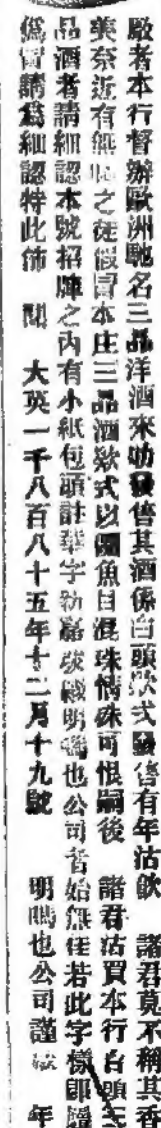 啟者本行督辦歐洲馳名三品洋酒來叻發售其酒係白頭欵式發售有年沽飲 諸君莫不稱其香
美奈近有無恥之徒假冒本庄三品酒欵式以圖魚目混珠情殊可恨嗣後 諸君沽買本行白頭三
品酒者請細認本號招牌之內有小紙包頭註華字叻嘉 明 也公司 始無 若此字樣即
偽冒請為細認特此佈 聞 大英一千八百八十五年十二月十九號 明 也公司謹 年